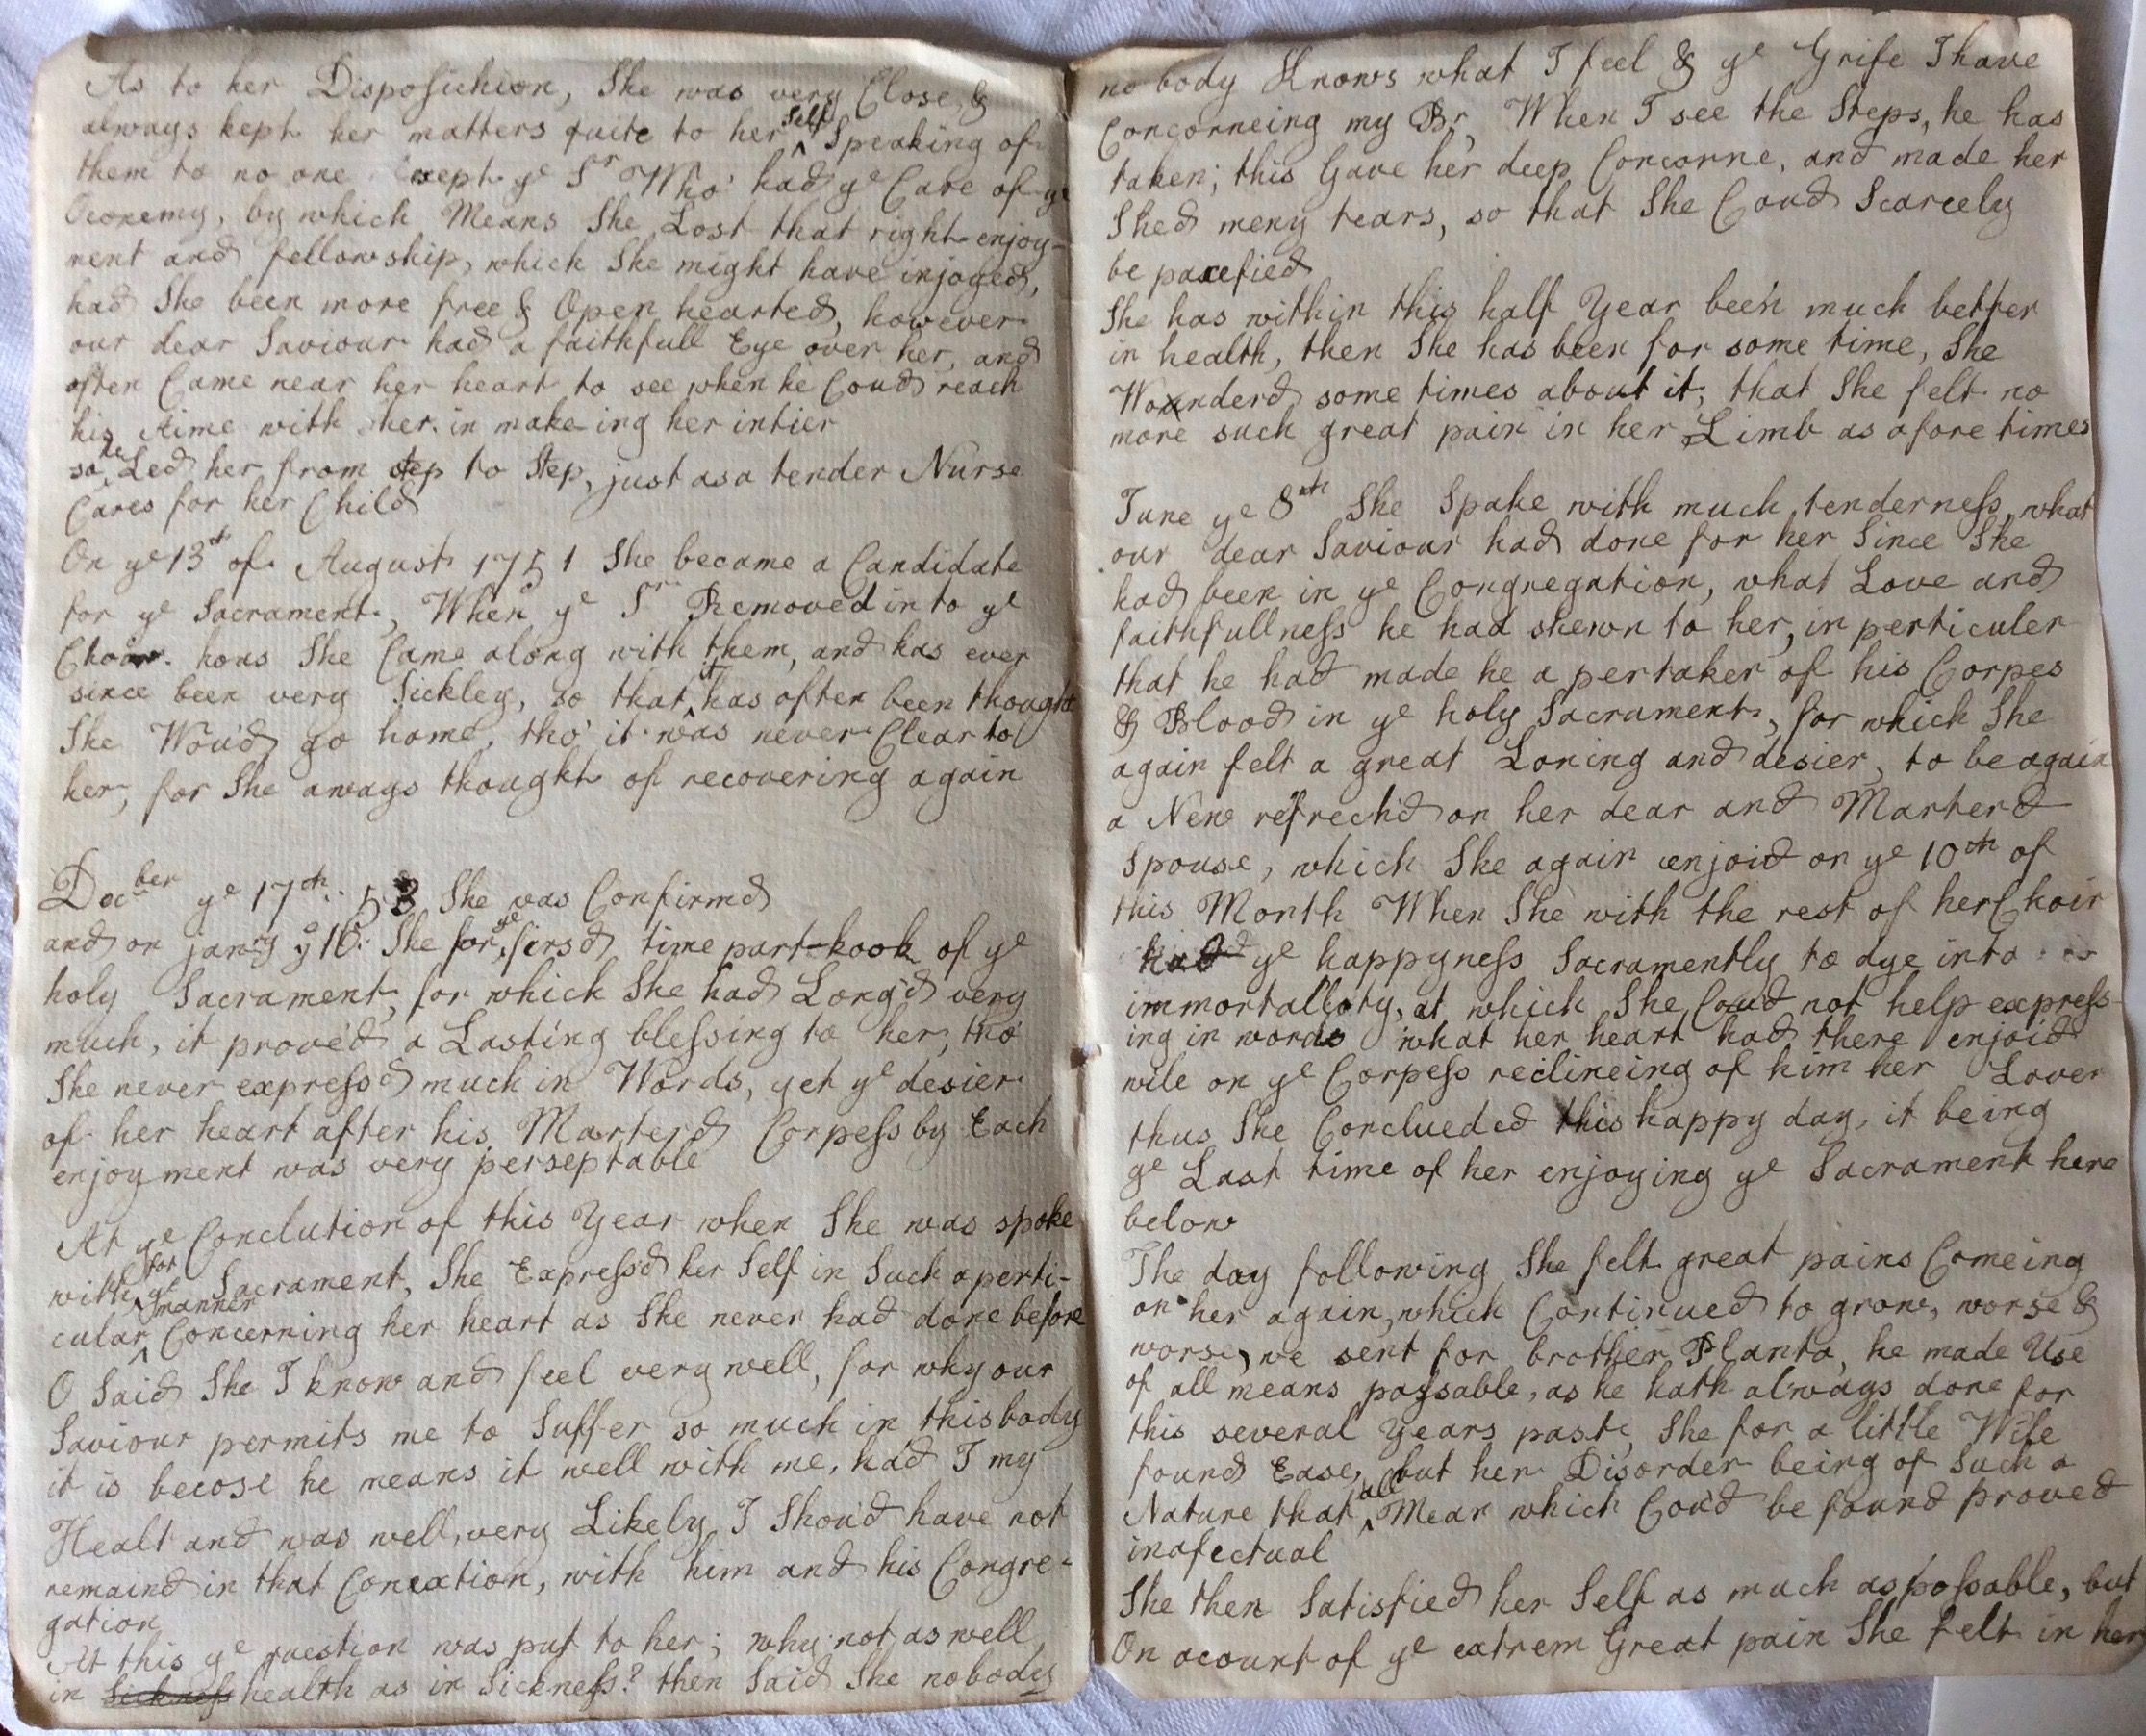 As to her Disposichion, She was very Close &
always kept her matters quite to her Self Speaking of
them to no one Exept ye Sr Who had ye Care of ye
Oconemy, by which Means She Lost that right enjoy-
nent and fellowship, which She might have injoyed,
had She been more free & Open hearted, however
our dear Saviour had a faithfull Eye over her, and
often Came near her heart to see when he Coud reach
his Aime with her in make ing her intier
so he Led her from step to Step, just as a tender Nurse
Cares for her Child
On ye 13th of August 1751 She became a Candidate
for ye Sacrament, When ye Sr Removed into ye
Choir hous She Came along with them, and has ever
since been very Sickley, so that it has often been thought
She Wou'd go home, tho' it was never Clear to
her, for She aways thought of recovering again
Decber ye 17th: 53 She was Confirmed
and on janry ye 16: She for ye firsd time part-kook of ye
holy Sacrament, for which She had Long'd very
much, it proved a Lasting blessing to her, tho'
She never express'd much in Words, yet ye desier
of her heart after his Marterd Corpess by Each
enjoyment was very perseptable
At ye Conclution of this Year when She was spoke
with for ye Sacrament, She Express'd her Self in Such a perti-
cular manner Concerning her heart as She never had done before
O Said She I know and feel very well, for why our
Saviour permits me to Suffer so much in this body
it is becose he means it well with me, had I my
Healt and was well, very Likely I Shou'd have not
remaind in that Conextion, with him and his Congre-
gation
At this ye question was put to her; why not as well
in Sickness health as in Sickness? then Said She nobody
no body Knows what I feel & ye Grife I have
Concorneing my Br, When I see the Steps, he has
taken; this Gave her deep Concorne, and made her
Shed meny tears, so that She Coud Scarcely
be pacefied
She has within this half Year been much better
in health, then She has been for some time, She
Wounderd some times about it, that She felt no
more such great pain in her Limb as afore times
June ye 8th She Spake with much tenderness, what
our dear Saviour had done for her Since She
had been in ye Congregation, what Love and
faithfullness he had shewn to her, in perticuler
that he had made he a pertaker of his Corpes
& Blood in ye holy Sacrament, for which She
again felt a great Loning and desier, to be again
a New refrech'd on her dear and Marterd
Spouse, which She again enjoid on ye 10th of
this Month When She with the rest of her Choir
had ye happyness Sacramently to dye into
immortalloty, at which She Coud not help express-
ing in words what her heart had there enjoid
wile on ye Corpess reclineing of him her Lover
thus She Conclueded this happy day, it being
ye Last time of her enjoying ye Sacrament here
below
The day following She felt great pains Comeing
on her again, which Continued to grow, worse &
worse, we sent for brother Planta, he made Use
of all means possable, as he hath always done for
this several Years past, She for a little Wile
found Ease, but her Disorder being of Such a
Nature that all Mean which Cou'd be found proved
inafectual
She then Satisfied her Self as much as possable, but
On acount of ye extrem Great pain She felt in her